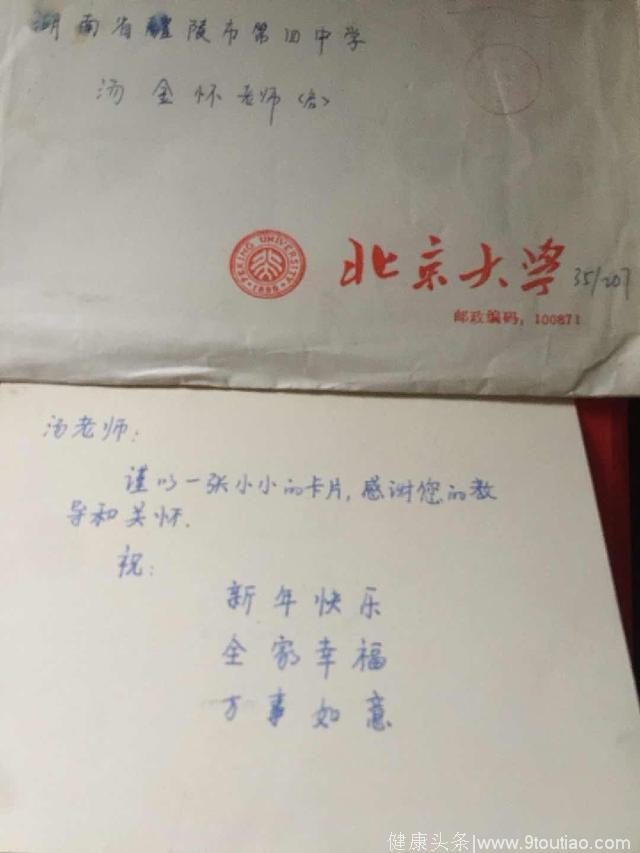 湖南省醴陵市第四中学
汤金怀老师(客)
PEKING UNIVERSITY
1898
北京大学 35/207
邮政编码：100871
汤老师：
谨以一张小小的卡片，感谢您的教
导和关怀.
祝：
新年快乐
全家幸福
万事如意
健康头条/www.9toutiao.com